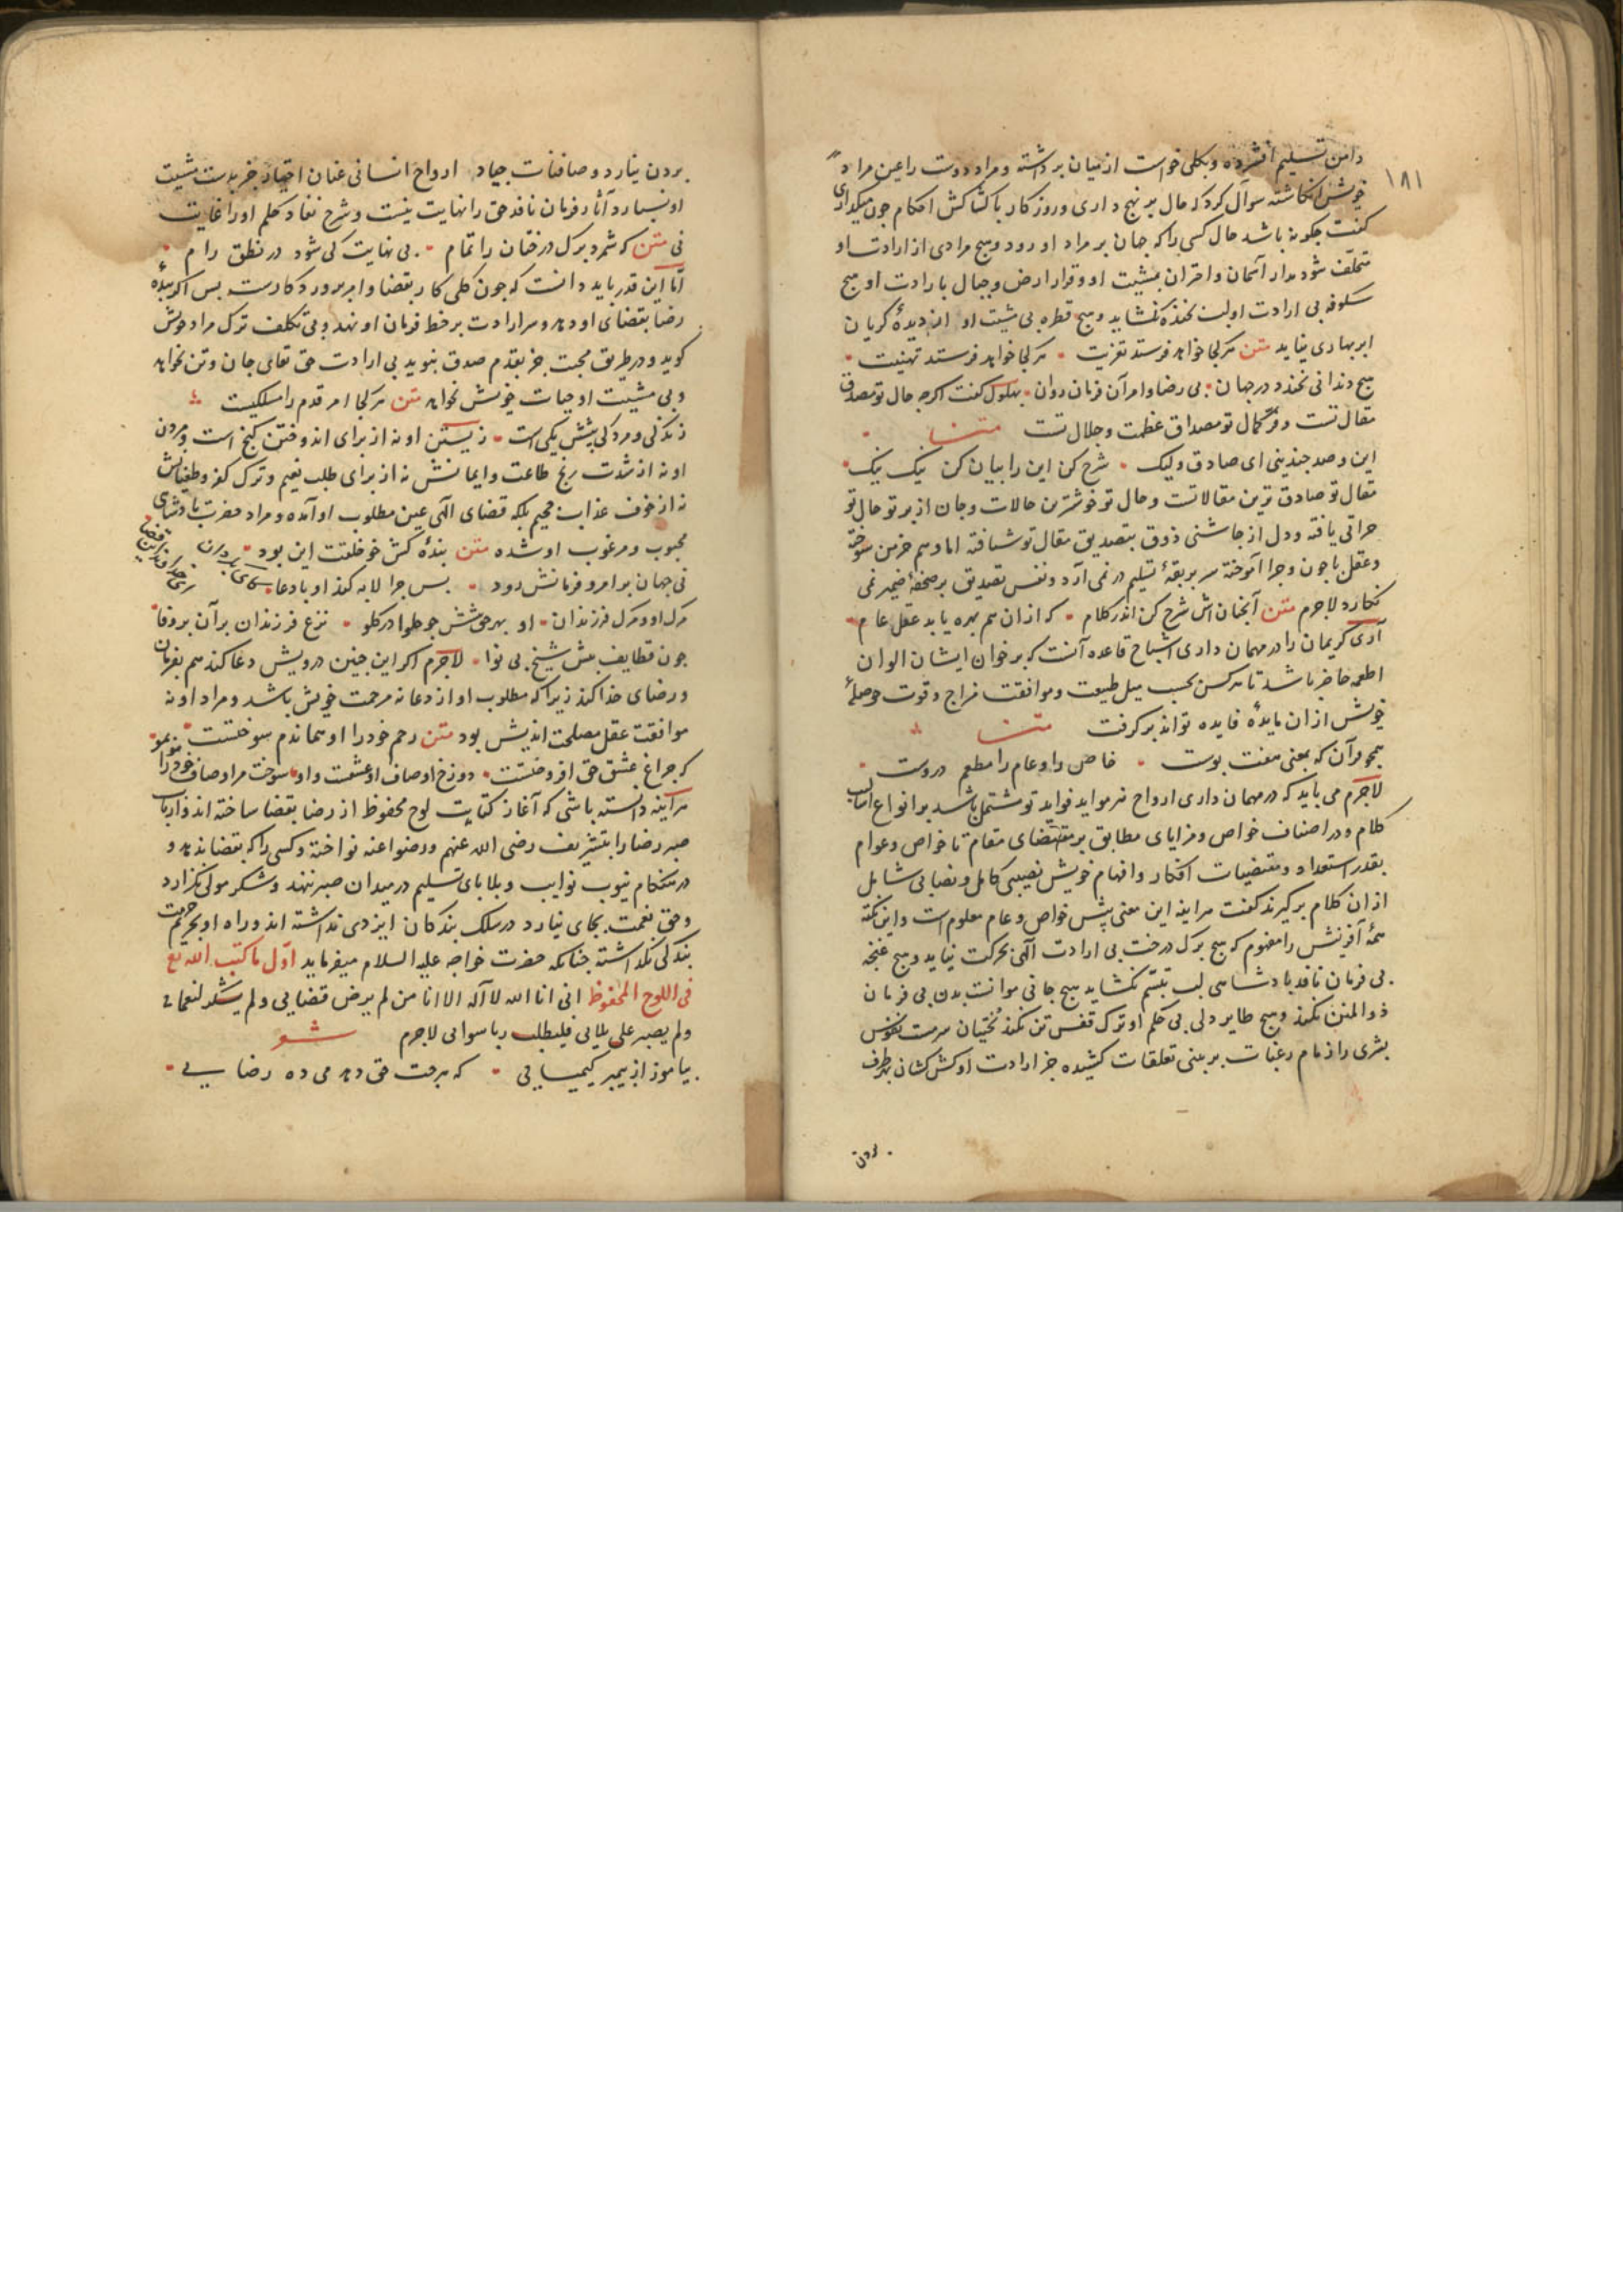 ۱۸۱
دامن تسلیم افشرده وبکلی خواست ازمیان برداشته ومراد دوست راعین مراد
خویش انکاشته سوآل کردکه حال بر نهج داری وروزکار باکشاکش احکام جون میکذاری
کفت جکونه باشد حال کسی راکه جهان بر مراد او رود وهیج مرادی از ارادت او
متخلف نشود مدار آسمان واختران بمشیت او وقرار ارض وجبال بارادت او هیج
شکوفه بی ارادت او لب بخنده نکشاید وهیج قطره بی مشیت او از دیدهٔ کریان
ابر بهاری نیاید متن هرکجا خواهد فرستد تعزیت ۰ هرکجا خواهد فرستد تهنیت ۰
هیج دندانی نخندد درجهان ۰ بی رضا وامر آن فرمان روان ۰ بهلول کفت اکرجه حال تو مصدق
مقال تست وفر کمال تو مصداق عظمت وجلال تست متن
این وصد جندینی ای صادق ولیک ۰ شرح کن این را بیان کن نیک نیک ۰
مقال تو صادق ترین مقالاتست وحال تو خوشترین حالات وجان از پرتو حال تو
حراتی یافته ودل از جاشنی ذوق بتصدیق مقال تو شتافته اما وهم خرمن سوخته
وعقل باجون وجرا آموخته سر بربقهٔ تسلیم در نمی آرد ونفس تصدیق برصحفهٔ ضمیر نمی
نکارد لاجرم متن آنجنان اش شرح کن اندر کلام ۰ که ازان هم بهره یابد عقل عام ۰
آری کریمان را در مهمان داری اشباح قاعده آنست که برخوان ایشان الوان
اطعمه حاضر باشد تا هرکس بحسب میل طبیعت وموافقت مزاج وقوت حوصلهٔ
خویش ازان مایدهٔ فایده تواند برکرفت متن
همجو قرآن که بمعنی هفت توست ۰ خاص را وعام را مطعم دروست ۰
لاجرم می باید که در مهمان داری ارواح نیز مواید فواید تو مشتمل باشد بر انواع اسالیب
کلام ودر اصناف خواص ومزایای مطابق بر مقتضای مقام تا خواص وعوام
بقدر استعداد ومقتضیات افکار وافهام خویش نصیبی کامل ونصابی شامل
ازان کلام برکیرند کفت هراینه این معنی پیش خواص وعام معلوم است واین نکته
همهٔ آفرینش را مفهوم که هیج برک درخت بی ارادت آلهی بحرکت نیاید وهیج غنجه
بی فرمان نافذ پادشاهی لب بتبسم نکشاید هیج جانی موانست بدن بی فرمان
ذوالمنن نکند وهیج طایر دلی بی حکم او ترک قفس تن نکند بختیان سرمست نفوس
بشری را زمام رغبات بر بینی تعلقات کشیده جز ارادت او کش کشان بهر طرف
بردن
بردن نیارد وصافنات جیاد ارواح انسانی عنان اختیار جز بدست مشیت
او نسپارد آثار فرمان نافذ حق را نهایت نیست وشرح نفاد حکم اورا غایت
نی متن که شمرد برک درختان را تمام ۰ بی نهایت کی شود در نطق رام ۰
اما این قدر باید دانست که جون کلی کار بقضا وامر پروردکارست بس اکر بندهٔ
رضا بقضای او دهد وسر ارادت بر خط فرمان او نهد وبی تکلف ترک مراد خویش
کوید ودر طریق محبت جز بقدم صدق نپوید بی ارادت حق بقای جان وتن نخواهد
وبی مشیت او حیات خویش نخواهد متن هرکجا امر قدم را مسلکیست
زندکی ومردکی پیشش یکی است ۰ زیستن او نه از برای اندوختن کنج است ومردن
او نه از شدت رنج طاعت وایمانش نه از برای طلب نعیم وترک کفر وطغیانش
نه از خوف عذاب جحیم بلکه قضای آلهی عین مطلوب او آمده ومراد حضرت پادشاهی
محبوب ومرغوب او شده متن بندهٔ کش خو وخلقت این بود ۰
نی جهان بر امر وفرمانش رود ۰ بس جرا لابه کند او یا دعا ۰ کای بکردان ای خداوند این قضا
مرک او ومرک فرزندان ۰ او بهر حق پیشش جو حلوا در کلو ۰ نزع فرزندان بر آن بر وفا ۰
جون قطایف پیش شیخ بی نوا ۰ لاجرم اکر این جنین درویش دعا کند هم بفرمان
ورضای خدا کند زیرا که مطلوب او از دعا نه مرحمت خویش باشد ومراد او نه
موافقت عقل مصلحت اندیش بود متن رحم خودرا او هماندم سوختست ۰
که جراغ عشق حق افروختست ۰ دوزخ اوصاف او عشقست واو ۰ سوخت مر اوصاف خودرا مو بمو ۰
هراینه دانسته باشی که آغاز کتابت لوح محفوظ از رضا بقضا ساخته اند وارباب
صبر ورضا را بتشریف رضی الله عنهم ورضوا عنه نواخته وکسی را که بقضا ندهد و
در هنکام نیوب نوایب وبلا پای تسلیم در میدان صبر ننهد وشکر مولی نکزارد
وحق نعمت بجای نیارد در سلک بندکان ایزدی نداشته اند وراه او بحریم حرمت
بندکی نکداشته جنانکه حضرت خواجه علیه السلام میفرماید اول ما کتب الله تع
فی اللوح المحفوظ انی انا الله لا آله الا انا من لم یرض قضایی ولم یشکر لنعمایی
ولم یصبر علی بلایی فلیطلب ربا سوایی لاجرم شعر
بیاموز از پیمبر کیمیایی ۰ که هرجت حق دهد می ده رضایی ۰